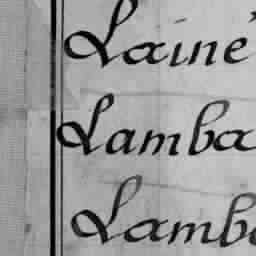 Lainé
Lamba
Lamb